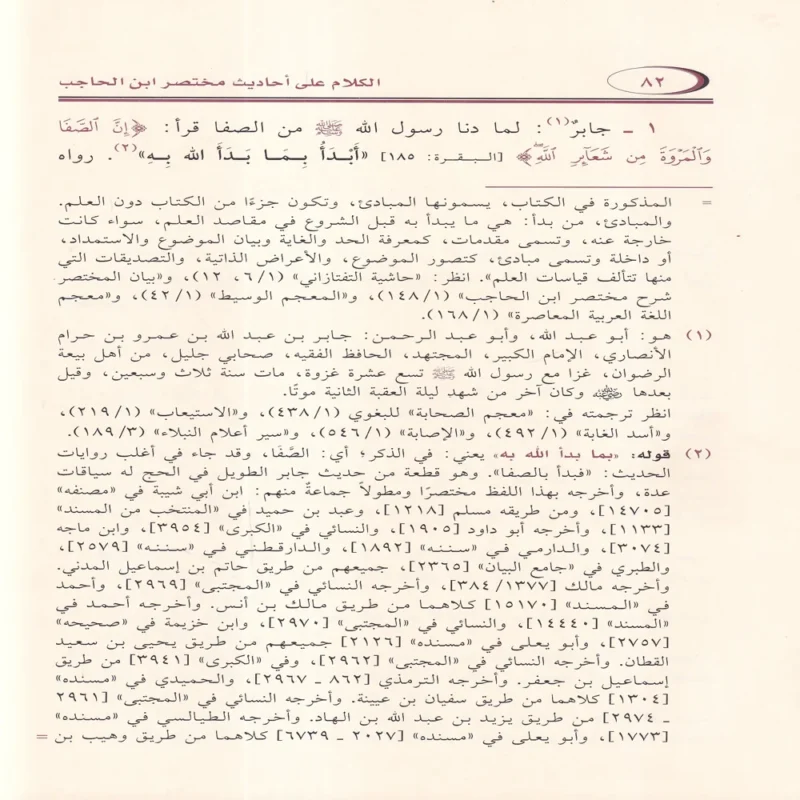 ٨٢
الكلام على أحاديث مختصر ابن الحاجب
١ ـ جابرٌ(١): لما دنا رسول الله ﷺ من الصفا قرأ: ﴿إِنَّ ٱلصَّفَا
وَٱلْمَرْوَةَ مِن شَعَآئِرِ ٱللَّهِ﴾ [البقرة: ١٨٥] «أَبْدَأُ بِمَا بَدَأَ الله بِهِ»(٢). رواه
= المذكورة في الكتاب، يسمونها المبادئ، وتكون جزءًا من الكتاب دون العلم.
والمبادئ، من بدأ: هي ما يبدأ به قبل الشروع في مقاصد العلم، سواء كانت
خارجة عنه، وتسمى مقدمات، كمعرفة الحد والغاية وبيان الموضوع والاستمداد،
أو داخلة وتسمى مبادئ، كتصور الموضوع، والأعراض الذاتية، والتصديقات التي
منها تتألف قياسات العلم». انظر: «حاشية التفتازاني» (١/ ٦، ١٢)، و«بيان المختصر
شرح مختصر ابن الحاجب» (١/ ١٤٨)، و«المعجم الوسيط» (١/ ٤٢)، و«معجم
اللغة العربية المعاصرة» (١/ ١٦٨).
(١) هو: أبو عبد الله، وأبو عبد الرحمن: جابر بن عبد الله بن عمرو بن حرام
الأنصاري، الإمام الكبير، المجتهد، الحافظ الفقيه، صحابي جليل، من أهل بيعة
الرضوان، غزا مع رسول الله ﷺ تسع عشرة غزوة، مات سنة ثلاث وسبعين، وقيل
بعدها وكان آخر من شهد ليلة العقبة الثانية موتًا.
انظر ترجمته في: «معجم الصحابة» للبغوي (١/ ٤٣٨)، و«الاستيعاب» (١/ ٢١٩)،
و«أسد الغابة» (١/ ٤٩٢)، و«الإصابة» (١/ ٥٤٦)، و«سير أعلام النبلاء» (٣/ ١٨٩).
(٢) قوله: «بما بدأ الله به» يعني: في الذكر؛ أي: الصَّفَا، وقد جاء في أغلب روايات
الحديث: «فبدأ بالصفا». وهو قطعة من حديث جابر الطويل في الحج له سياقات
عدة، وأخرجه بهذا اللفظ مختصرًا ومطولًا جماعةٌ منهم: ابن أبي شيبة في «مصنفه»
[١٤٧٠٥]، ومن طريقه مسلم [١٢١٨]، وعبد بن حميد في «المنتخب من المسند»
[١١٣٣]، وأخرجه أبو داود [١٩٠٥]، والنسائي في «الكبرى» [٣٩٥٤]، وابن ماجه
[٣٠٧٤]، والدارمي في «سننه» [١٨٩٢]، والدارقطني في «سننه» [٢٥٧٩]،
والطبري في «جامع البيان» [٢٣٦٥]، جميعهم من طريق حاتم بن إسماعيل المدني.
وأخرجه مالك [١٣٧٧/ ٣٨٤]، وأخرجه النسائي في «المجتبى» [٢٩٦٩]، وأحمد
في «المسند» [١٥١٧٠] كلاهما من طريق مالك بن أنس. وأخرجه أحمد في
«المسند» [١٤٤٤٠]، والنسائي في «المجتبى» [٢٩٧٠]، وابن خزيمة في «صحيحه»
[٢٧٥٧]، وأبو يعلى في «مسنده» [٢١٢٦] جميعهم من طريق يحيى بن سعيد
القطان. وأخرجه النسائي في «المجتبى» [٢٩٦٢]، وفي «الكبرى» [٣٩٤١] من طريق
إسماعيل بن جعفر. وأخرجه الترمذي [٨٦٢ ـ ٢٩٦٧]، والحميدي في «مسنده»
[١٣٠٤] كلاهما من طريق سفيان بن عيينة. وأخرجه النسائي في «المجتبى» [٢٩٦١
ـ ٢٩٧٤] من طريق يزيد بن عبد الله بن الهاد. وأخرجه الطيالسي في «مسنده»
[١٧٧٣]، وأبو يعلى في «مسنده» [٢٠٢٧ ـ ٦٧٣٩] كلاهما من طريق وهيب بن =